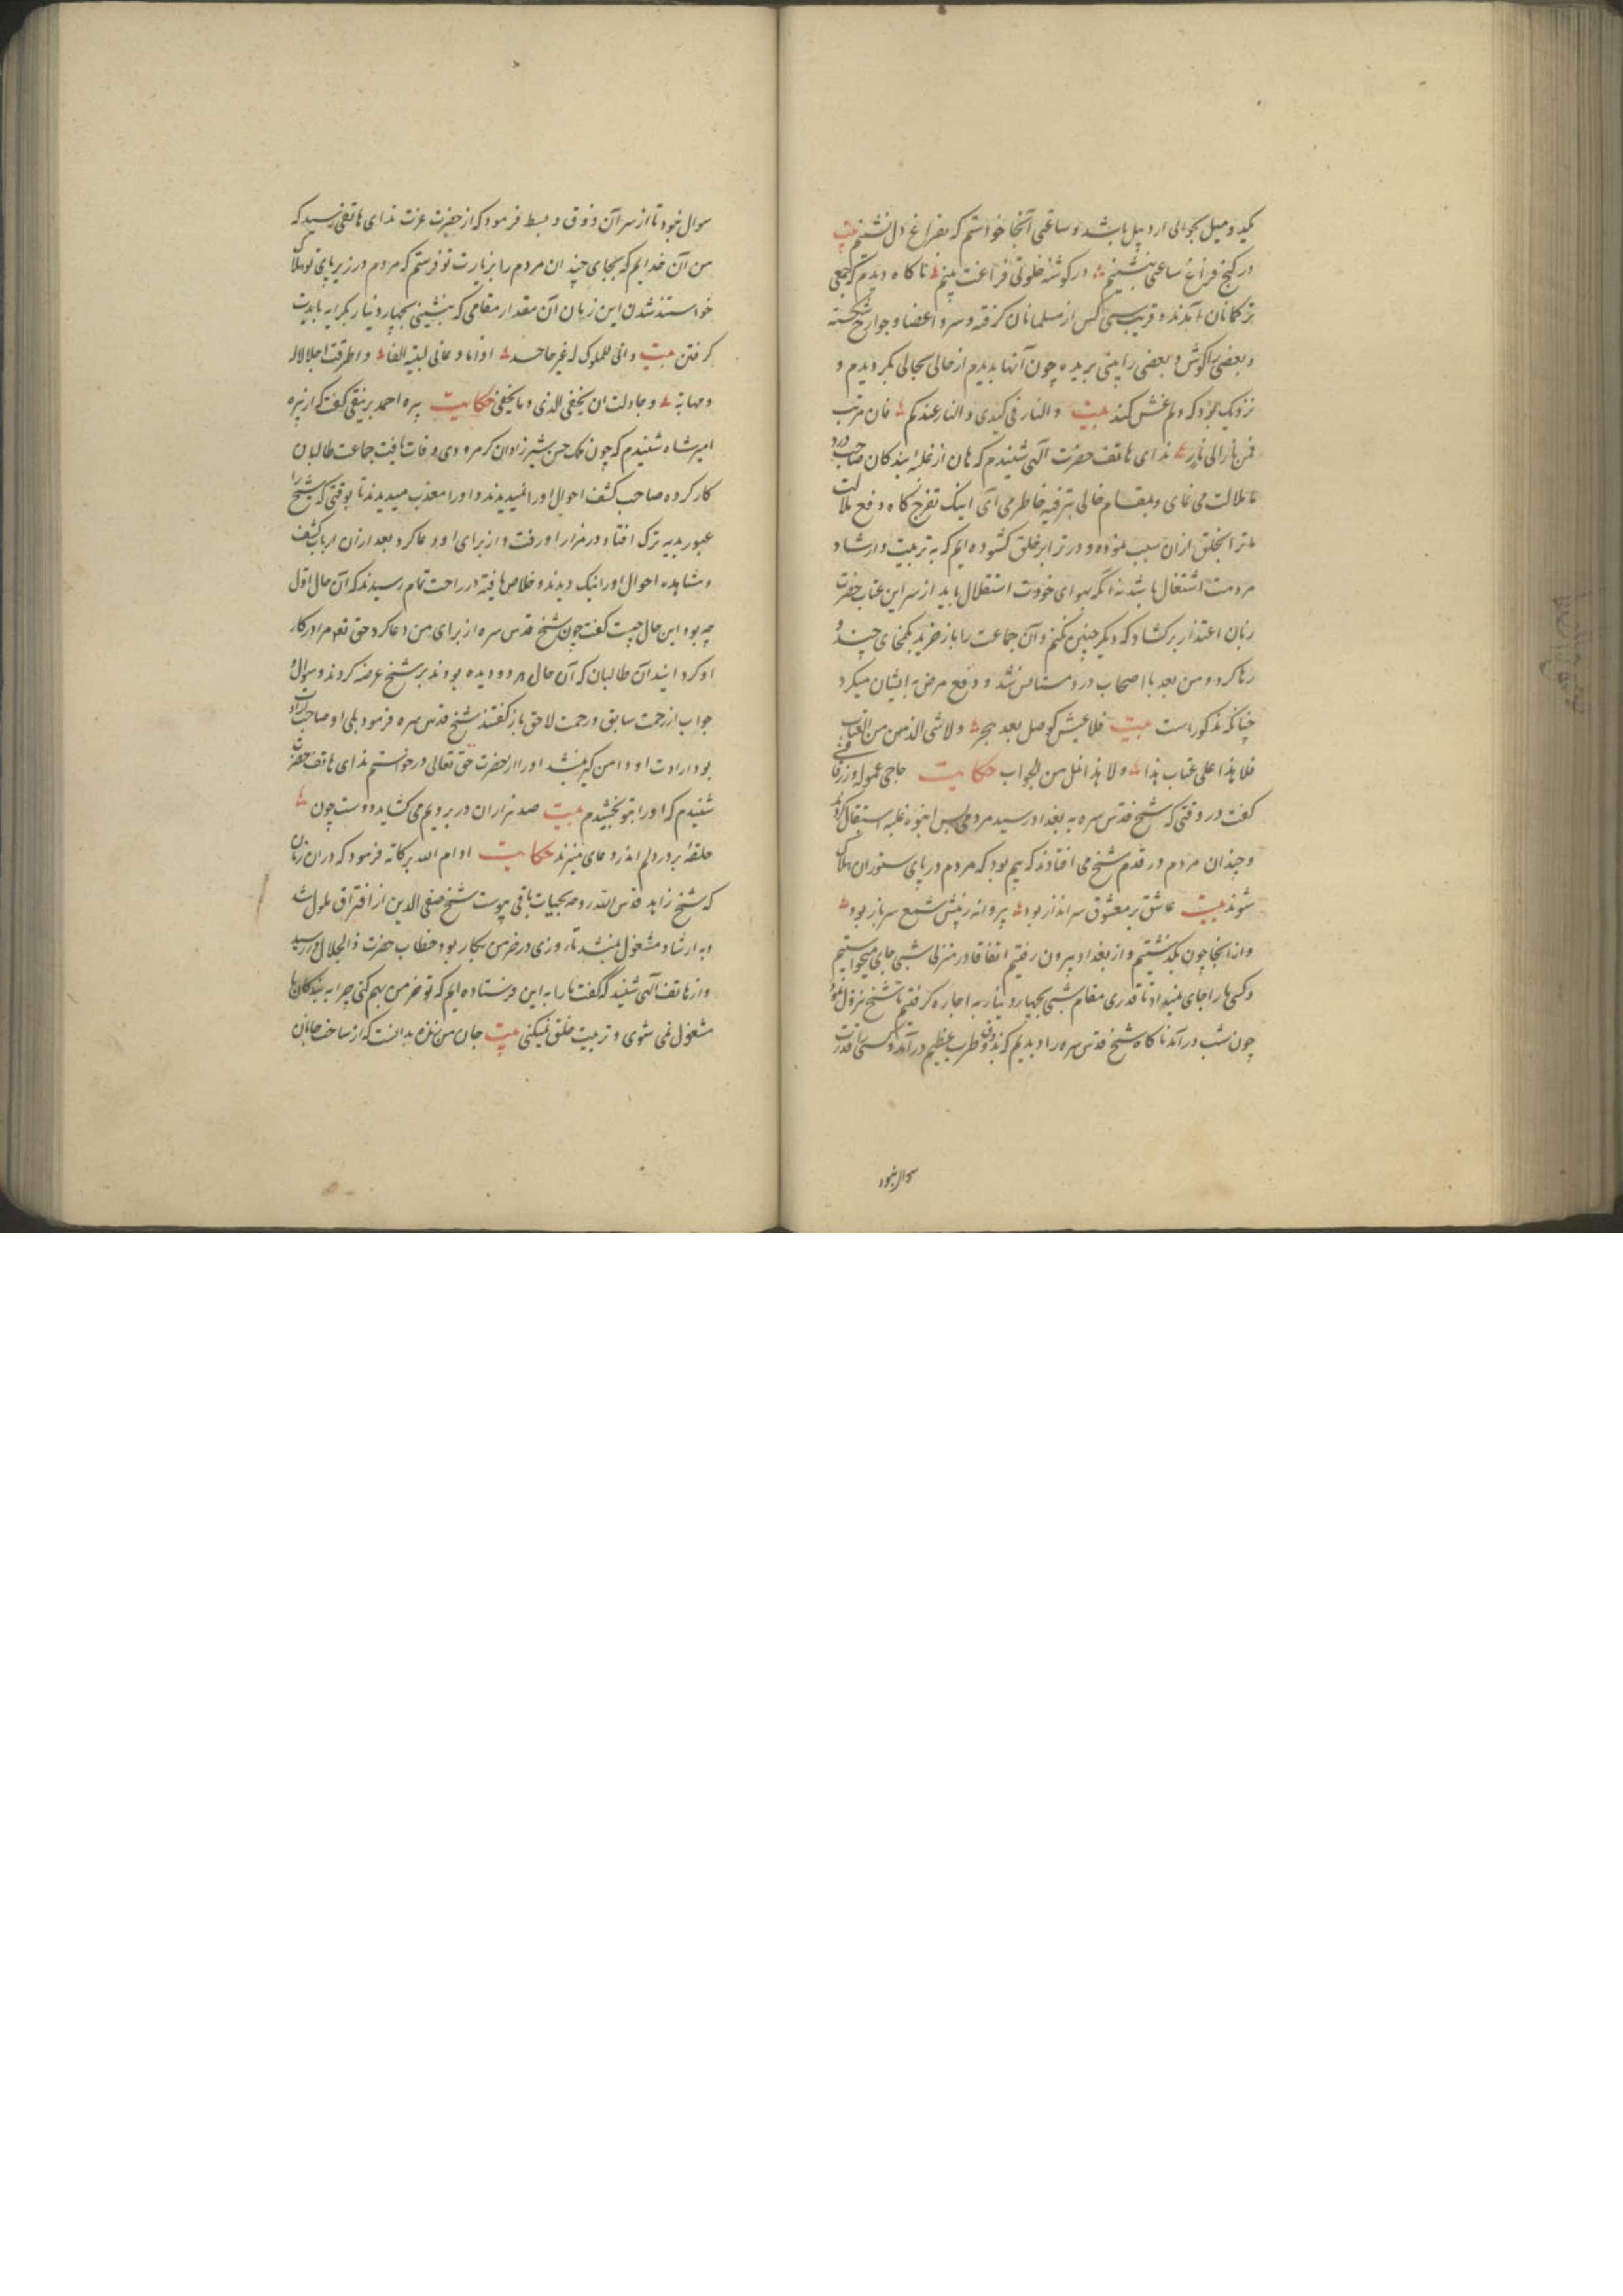 یکید و میل بحوالی اردبیل باشد و ساعتی آنجا خواستم که بفراغ دل نشینم بیت
در کنج فراغ ساعتی بنشینم در گوشه خلوتی فراغت بینم ناکاه دیدم که جمعی
ترکمانان آمدند و قریب سی کس از مسلمانان گرفته و سر و اعضا و جوارح شکسته
و بعضی را گوش و بعضی را بینی بریده چون آنها بدیدم از حالی بحالی بگردیدم و
نزدیک بود که دلم غش کند بیت والنار فی کبدی والنار عندکم فان مررت
فمن نار الی نار ندای هاتف حضرت آلهی شنیدم که هان از غلبه بندگان صاحب درد
ما ملالت می نمای و بمقام خالی بترفیه خاطر می آی اینک تفرج گاه دفع ملالت
ما ترا بخلق از آن سبب نموده و در ترا بر خلق گشوده ایم که به تربیت و ارشاد
مردمت اشتغال باشد نه آنکه بهوای خودت استقلال باید از سر این عتاب حضرت
زبان اعتذار برکشاد که دیگر چنین نکنم و آن جماعت را باز خرید بکمخای چند و
رها کرد و من بعد با اصحاب درد مستانس شد و دفع مرض به ایشان میکرد
چنانکه مذکور است بیت فلا عیش کوصل بعد هجر ولا شی الذ من من العتاب
فلا هذا علی عتاب هذا ولا هذا امل من الجواب حکایت حاجی عمو
گفت در وقتی که شیخ قدس سره به بغداد رسید مردمی بس انبوه غلبه استقبال کردند
و چندان مردم در قدم شیخ می افتادند که بیم بود که مردم در پای ستوران هلاک
شوند بیت عاشق بر معشوق سر انداز بود پروانه به پیش شمع سرباز بود
و از انجا چون بگذشتیم و از بغداد بیرون رفتیم اتفاقا در منزلی شبی جای میخواستیم
و کسی ما را جای نمیداد تا قدری مقام شبی بچهار دینار به اجاره گرفتیم تا شیخ نزول نمود
چون شب درآمد ناکاه شیخ قدس سره را دیدیم که بذوق و طرب عظیم درآمد و کسی را قدرت
سوال نبود
سوال نبود تا از سر آن ذوق و بسط فرمود که از حضرت عزت ندای هاتفی رسید که
من آن خدایم که بجای چندان مردم را بزیارت تو فرستم که مردم در زیر پای تو هلاک
خواستند شدن این زمان آن مقدار مقامی که بنشینی بچهار دینار بکرایه بایدت
گرفتن بیت وانی للملوک له غیر جاحد اذا ما دعانی لبیته الفا واطرقت اجلالا له
ومهابة وحاولت ان یخفی الذی وما یخفی حکایت پیره احمد برنیقی گفت که از پیره
امیر شاه شنیدم که چون ملک حسن بشیرزادان کرمرودی وفات یافت جماعت طالبان
کار کرده صاحب کشف احوال او را میدیدند و او را معذب میدیدند تا بوقتی که شیخ را
عبور بدیه ترک افتاد در مزار او رفت و از برای او دعا کرد بعد از آن ارباب کشف
و مشاهده احوال او را نیک دیدند و خلاص یافته در راحت تمام رسیدند که آن حال اول
چه بود این حال چیست گفت چون شیخ قدس سره از برای من دعا کرد حق تعم مرا در کار
او کرد ایندا آن طالبان که آن حال هر دو دیده بودند بر شیخ عرضه کردند و سوال و
جواب از زحمت سابق و رحمت لاحق باز گفتند شیخ قدس سره فرمود بلی او صاحب ارادت
بود ارادت او دامن گیر میشد او را از حضرت حق تعالی درخواستم ندای هاتف حضرت
شنیدم که او را بتو بخشیدم بیت صد هزاران در برویم می کشاید دوست چون
حلقه بر در دلم اندر دعای میزند حکایت ادام الله برکاته فرمود که در آن زمان
که شیخ زاهد قدس الله روحه بحیات باقی پیوست شیخ صفی الدین از افتراق ملول شد
و به ارشاد مشغول نمیشد تا روزی در خرمن بکار بود خطاب حضرت ذالجلال در رسید
و از هاتف آلهی شنید که گفت ما را به این فرستاده ایم که تو خرمن بهم کنی چرا به بندگان ما
مشغول نمی شوی و تربیت خلق نمیکنی بیت جان من مژده بدانست که از ساحت جانان